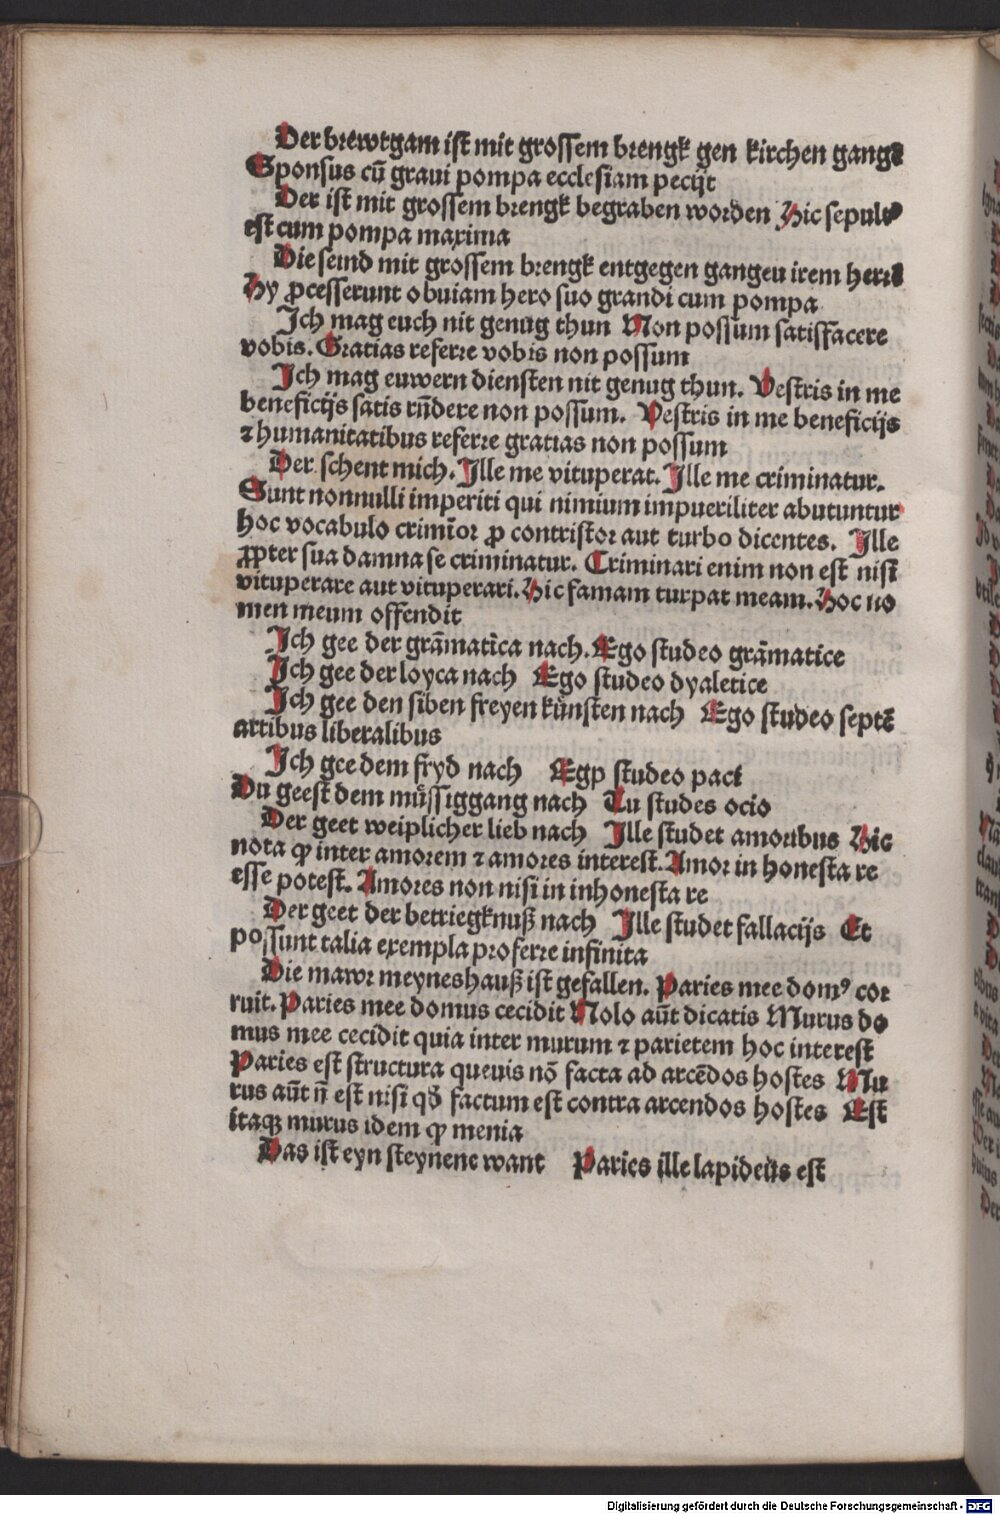 Der brewtgam ist mit grossem brengk gen kirchen gangē
Sponsus cū graui pompa ecclesiam pecijt
Der ist mit grossem brengk begraben worden Hic sepult⁹
est cum pompa maxima
Die seind mit grossem brengk entgegen gangeu irem herrē
Hy ꝓcesserunt obuiam hero suo grandi cum pompa
Ich mag euch nit genug thun Non possum satisfacere
vobis. Gratias referre vobis non possum
Ich mag euwern diensten nit genug thun. Vestris in me
beneficijs satis rn̄dere non possum. Vestris in me beneficijs
⁊ humanitatibus referre gratias non possum
Der schent mich. Ille me vituperat. Ille me criminatur.
Sunt nonnulli imperiti qui nimium impueriliter abutuntur
hoc vocabulo crimīor ꝓ contristor aut turbo dicentes. Ille
ꝓpter sua damna se criminatur. Criminari enim non est nisi
vituperare aut vituperari. Hic famam turpat meam. Hoc no
men meum offendit
Ich gee der grāmatica nach. Ego studeo grāmatice
Ich gee der loyca nach Ego studeo dyaletice
Ich gee den siben freyen kůnsten nach Ego studeo septē
artibus liberalibus
Ich gee dem fryd nach Egp studeo paci
Du geest dem můssiggang nach Tu studes ocio
Der geet weiplicher lieb nach Ille studet amoribus Hic
nota ꝙ inter amorem ⁊ amores interest. Amor in honesta re
esse potest. Amores non nisi in inhonesta re
Der geet der betriegknuß nach Ille studet fallacijs Et
possunt talia exempla proferre infinita
Die mawr meyneshauß ist gefallen. Paries mee dom⁹ cor
ruit. Paries mee domus cecidit Nolo aūt dicatis Murus do
mus mee cecidit quia inter murum ⁊ parietem hoc interest
Paries est structura queuis nō facta ad arcēdos hostes Mu
rus aūt n̄ est nisi qđ factum est contra arcendos hostes Est
itaqꝫ murus idem ꝙ menia
Das ist eyn steynene want Paries ille lapideus est
Digitalisierung gefördert durch die Deutsche Forschungsgemeinschaft - DFG